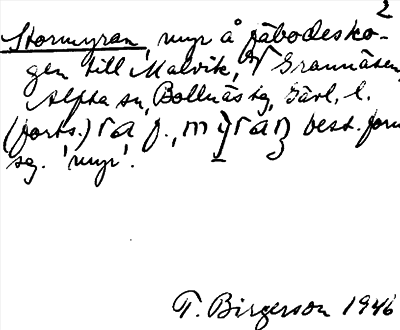 2
Stormyran, myr å fäbodesko-
gen till Malvik, V Grannäsen,
Alfta sn, Bollnäs tg, Gävl. l.
(forts.) ra f., myran best. form
sg. 'myr'.
T. Birgerson 1946